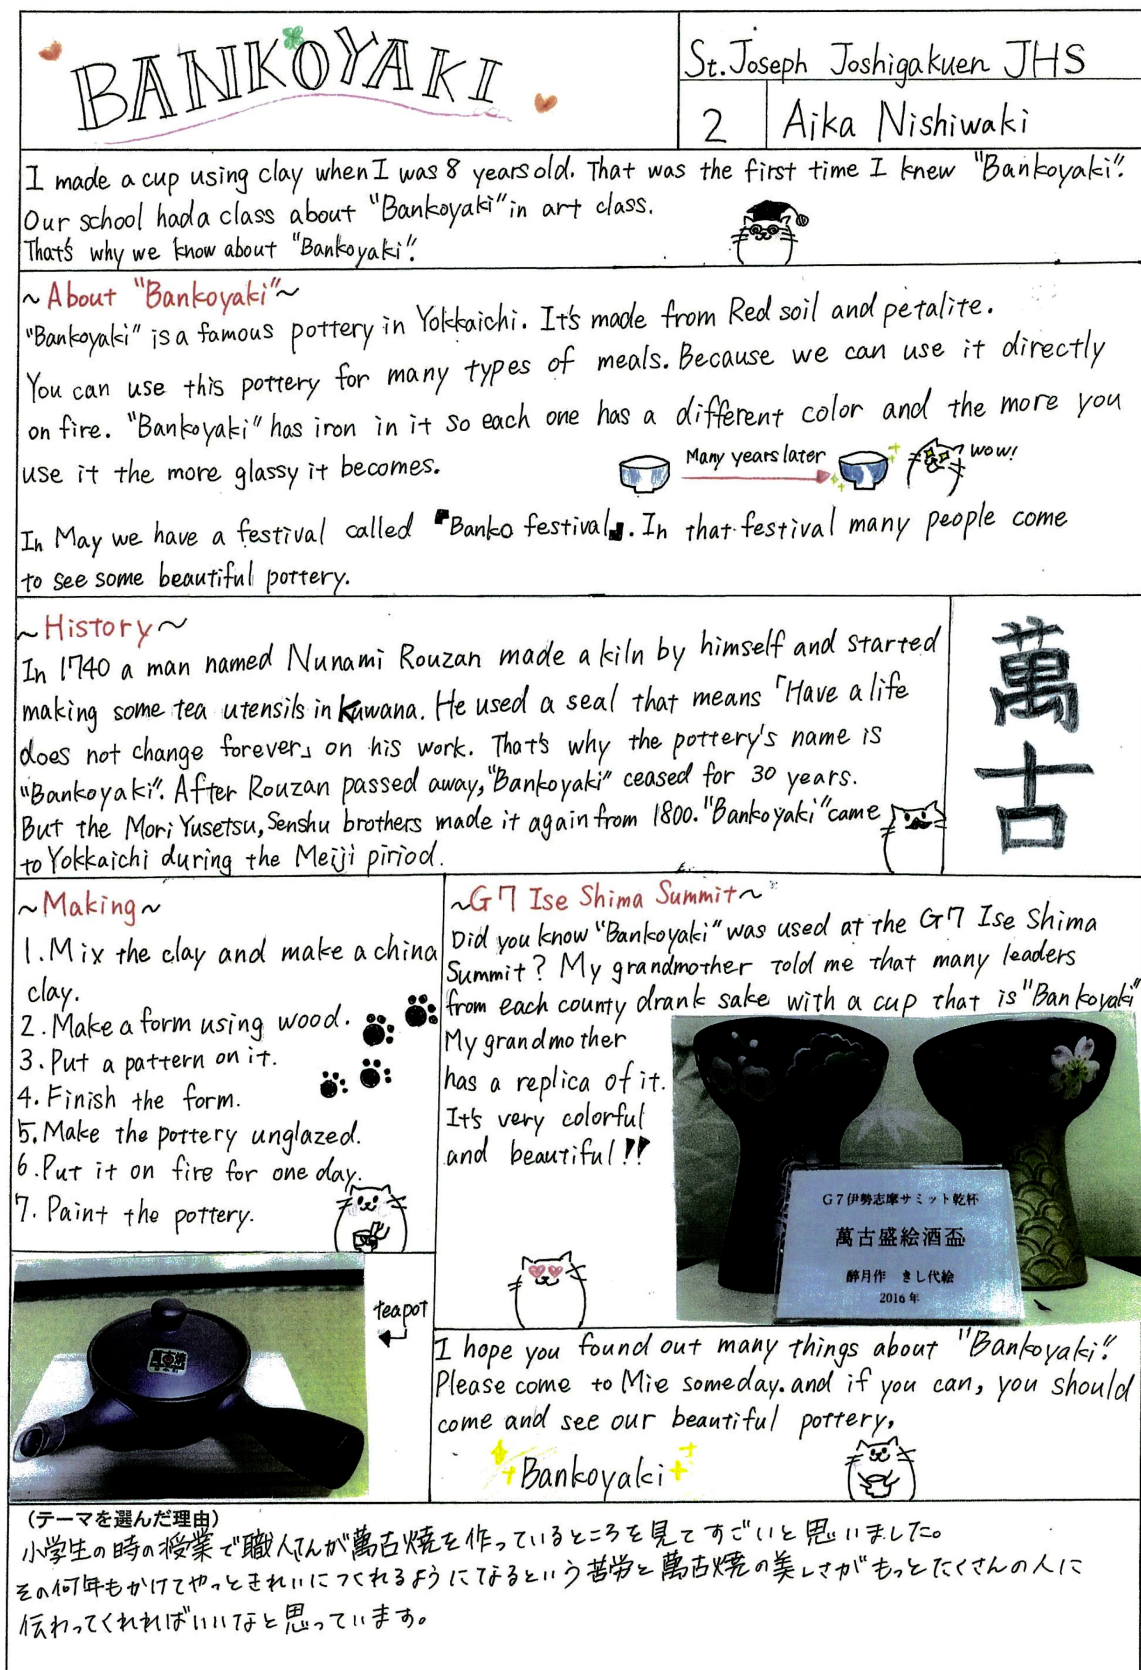 BANKOYAKI
St. Joseph Joshigakuen JHS
2 Aika Nishiwaki
I made a cup using clay when I was 8 years old. That was the first time I knew "Bankoyaki".
Our school had a class about "Bankoyaki" in art class.
That's why we know about "Bankoyaki".
~About "Bankoyaki"~
"Bankoyaki" is a famous pottery in Yokkaichi. It's made from Red soil and petalite.
You can use this pottery for many types of meals. Because we can use it directly
on fire. "Bankoyaki" has iron in it so each one has a different color and the more you
use it the more glassy it becomes.
Many years later
wow!
In May we have a festival called 『Banko festival』. In that festival many people come
to see some beautiful pottery.
~History~
In 1740 a man named Nunami Rouzan made a kiln by himself and started
making some tea utensils in Kuwana. He used a seal that means 「Have a life
does not change forever」 on his work. That's why the pottery's name is
"Bankoyaki". After Rouzan passed away, "Bankoyaki" ceased for 30 years.
But the Mori Yusetsu, Senshu brothers made it again from 1800. "Bankoyaki" came
to Yokkaichi during the Meiji piriod.
萬古
~Making~
1. Mix the clay and make a china
clay.
2. Make a form using wood.
3. Put a pattern on it.
4. Finish the form.
5. Make the pottery unglazed.
6. Put it on fire for one day.
7. Paint the pottery.
~G7 Ise Shima Summit~
Did you know "Bankoyaki" was used at the G7 Ise Shima
Summit? My grandmother told me that many leaders
from each county drank sake with a cup that is "Bankoyaki"
My grandmother
has a replica of it.
It's very colorful
and beautiful!!
G7伊勢志摩サミット乾杯
萬古盛絵酒盃
酔月作 きし代絵
2016年
teapot
萬古焼
I hope you found out many things about "Bankoyaki".
Please come to Mie someday. and if you can, you should
come and see our beautiful pottery,
Bankoyaki
(テーマを選んだ理由)
小学生の時の授業で職人さんが萬古焼を作っているところを見てすごいと思いました。
その何年もかけてやっときれいにつくれるようになるという苦労と萬古焼の美しさがもっとたくさんの人に
伝わってくれればいいなと思っています。